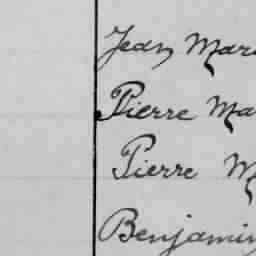 Jean Mar
Pierre Ma
Pierre M
Benjamin